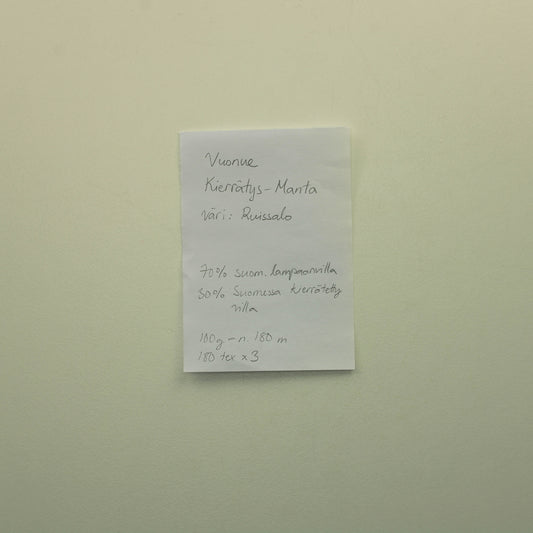 Vuonue
Kierrätys-Manta
väri: Ruissalo
70% suom. lampaanvilla
30% Suomessa kierrätetty
villa
100g - n. 180 m
180 tex x 3